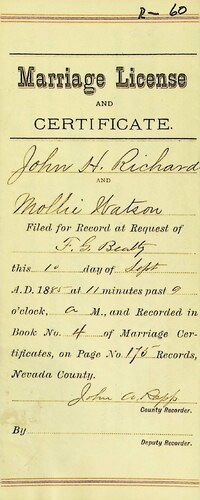 R- 60
Marriage License
AND
CERTIFICATE.
John H. Richard
AND
Mollie Watson
Filed for Record at Request of
F. G. Beatty
this 10 day of Sept
A.D. 1885 at 11 minutes past 9
o'clock, a M., and Recorded in
Book No. 4 of Marriage Cer-
tificates, on Page No. 175 Records,
Nevada County.
John A. Rapp
County Recorder.
By
Deputy Recorder.